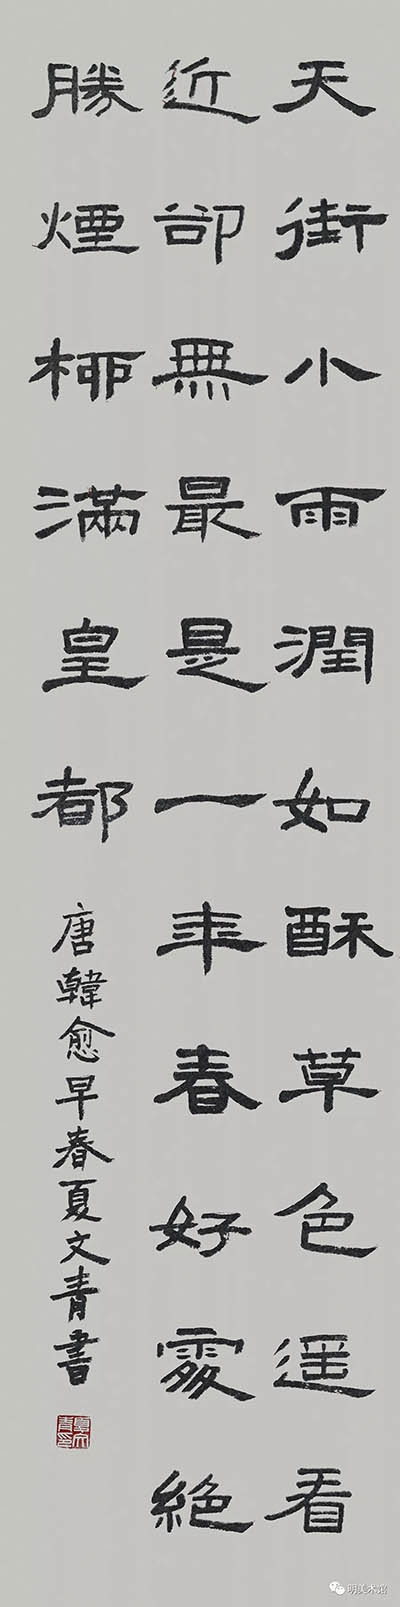 天街小雨潤如酥草色遥看
近卻無最是一年春好處絶
勝煙柳滿皇都
唐韓愈早春夏文青書
明美术馆